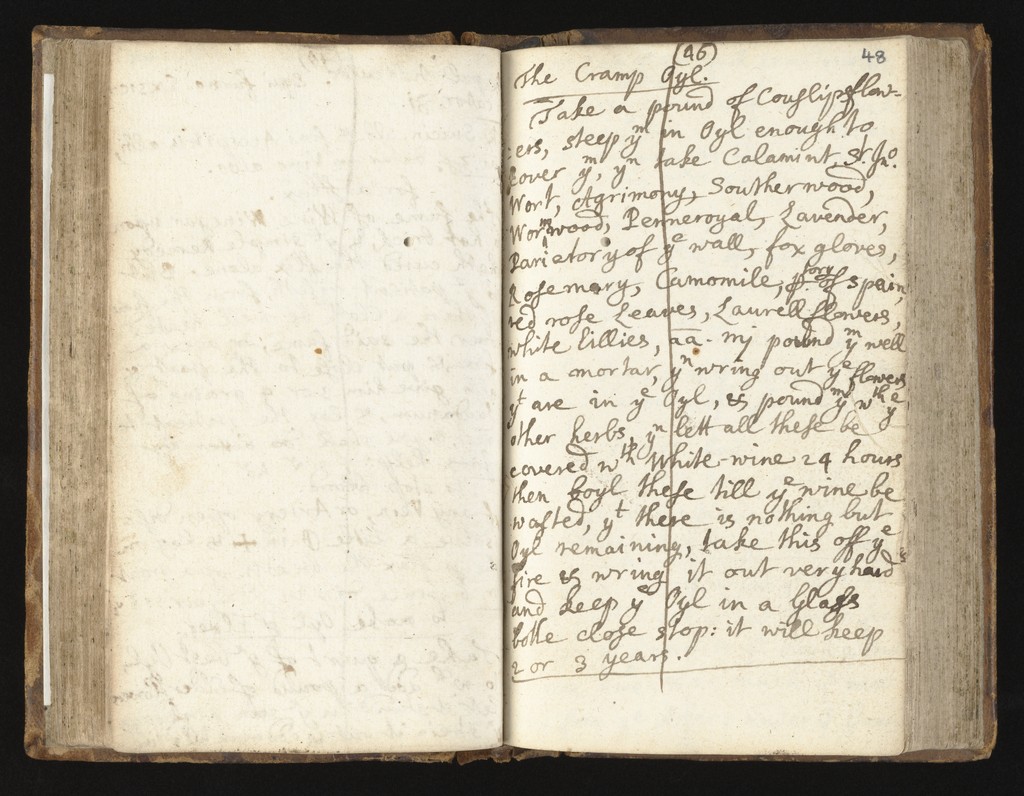 (46)
48
The Cramp Oyl.
Take a pound of Couslip flow=
:ers, steep yᵐ in Oyl enough to
Cover yᵐ, yⁿ take Calamint, Sᵗ Jnº.
Wort, Agrimony, Southerwood,
Wormwood, Penneroyal, Lavender,
Parietory of yᵉ wall, fox gloves,
Rosemary, Camomile, of spain,
red rose Leaves, Laurell flowers,
white Lillies, aa. mj pound yᵐ well
in a mortar, yⁿ wring out yᵉ flowers
yᵗ are in yᵉ Oyl, & pound yᵐ wᵗʰ yᵉ
other herbs, yⁿ lett all these be
covered wᵗʰ White-wine 24 hours
then boyl these till yᵉ wine be
wasted, yᵗ there is nothing but
Oyl remaining, take this off yᵉ
fire & wring it out very hard
and keep yᵉ Oyl in a Glass
botle close stop: it will keep
2 or 3 years.